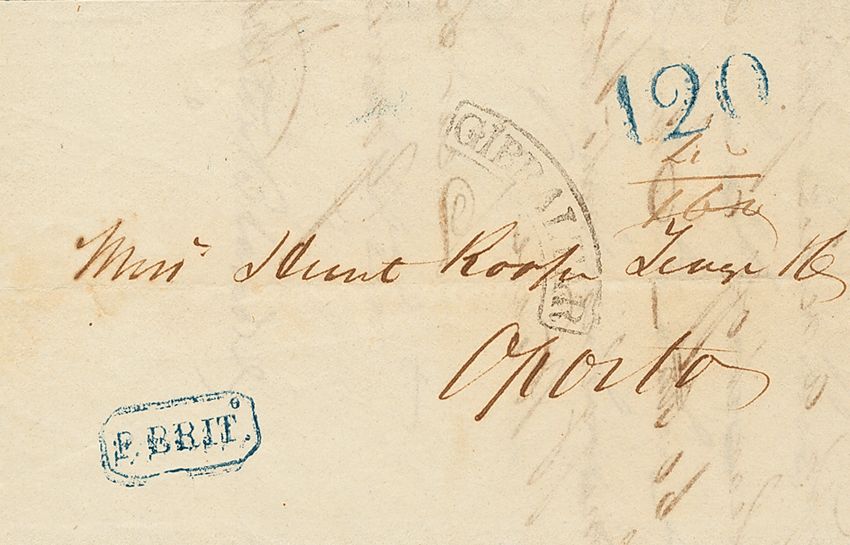 120
GIBRALTAR
Mess.rs Hunt Roope Teage &C
Oporto
P. BRITº.